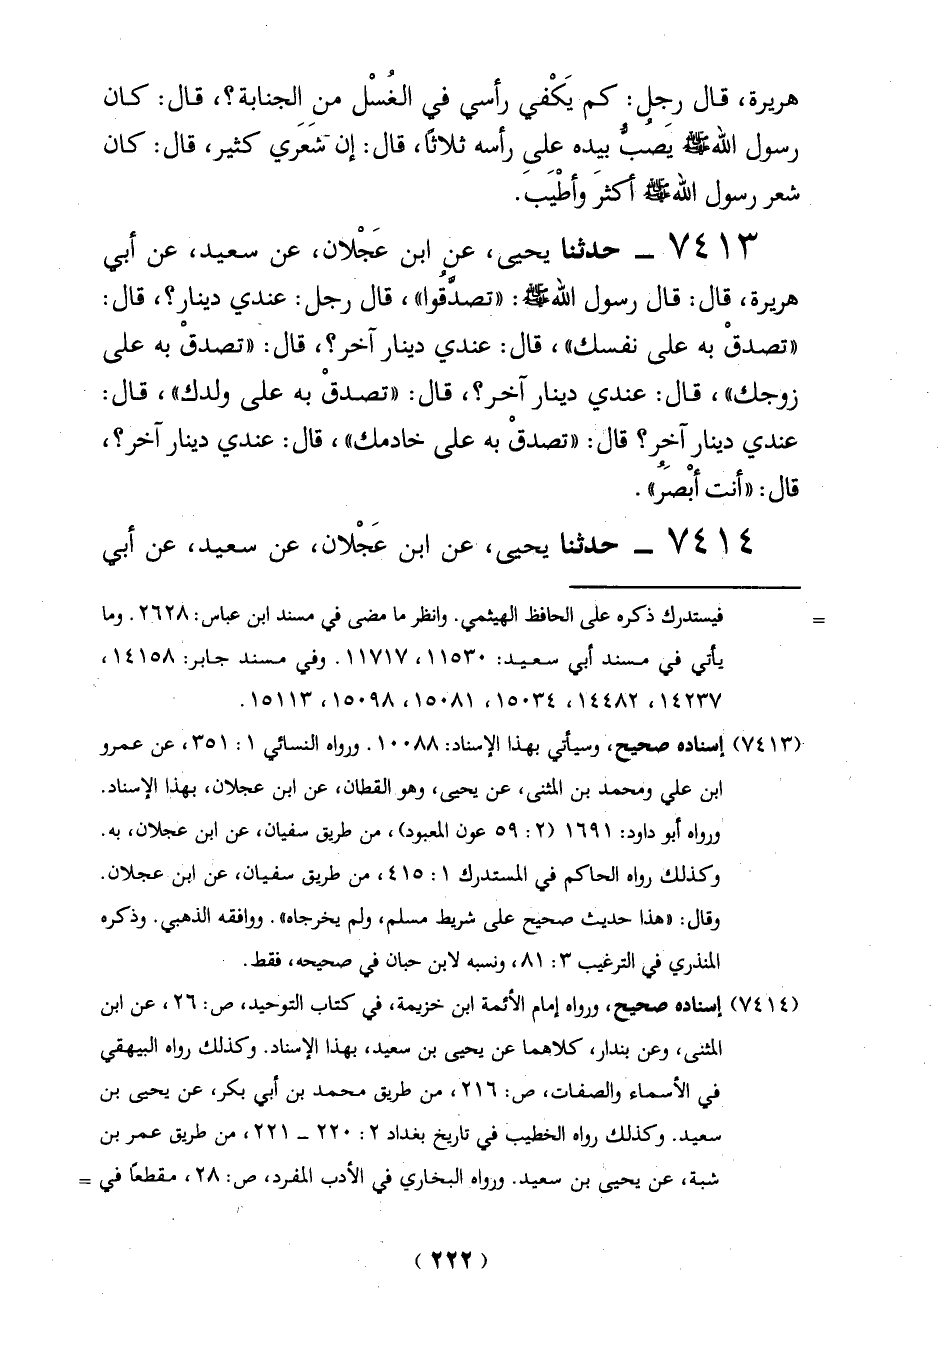 هريرة، قال رجل: كم يَكْفي رأسي في الغُسْل من الجنابة؟، قال: كان
رسول الله ﷺ يَصُبُّ بيده على رأسه ثلاثاً، قال: إن شَعَري كثير، قال: كان
شعر رسول الله ﷺ أكثرَ وأطْيَبَ.
٧٤١٣ ــ حدثنا يحيى، عن ابن عَجْلان، عن سعيد، عن أبي
هريرة، قال: قال رسول الله ﷺ: «تصدَّقُوا»، قال رجل: عندي دينار؟، قال:
«تصدقْ به على نفسك»، قال: عندي دينار آخر؟، قال: «تصدقْ به على
زوجك»، قال: عندي دينار آخر؟، قال: «تصدقْ به على ولدك»، قال:
عندي دينار آخر؟ قال: «تصدقْ به على خادمك»، قال: عندي دينار آخر؟،
قال: «أنت أبْصَرُ».
٧٤١٤ ــ حدثنا يحيى، عن ابن عَجْلان، عن سعيد، عن أبي
= فيستدرك ذكره على الحافظ الهيثمي. وانظر ما مضى في مسند ابن عباس: ٢٦٢٨. وما
يأتي في مسند أبي سعيد: ١١٥٣٠، ١١٧١٧. وفي مسند جابر: ١٤١٥٨،
١٤٢٣٧، ١٤٤٨٢، ١٥٠٣٤، ١٥٠٨١، ١٥٠٩٨، ١٥١١٣.
(٧٤١٣) إسناده صحيح، وسيأتي بهذا الإسناد: ١٠٠٨٨. ورواه النسائي ١: ٣٥١، عن عمرو
ابن علي ومحمد بن المثنى، عن يحيى، وهو القطان، عن ابن عجلان، بهذا الإسناد.
ورواه أبو داود: ١٦٩١ (٢: ٥٩ عون المعبود)، من طريق سفيان، عن ابن عجلان، به.
وكذلك رواه الحاكم في المستدرك ١: ٤١٥، من طريق سفيان، عن ابن عجلان.
وقال: «هذا حديث صحيح على شريط مسلم، ولم يخرجاه». ووافقه الذهبي. وذكره
المنذري في الترغيب ٣: ٨١، ونسبه لابن حبان في صحيحه، فقط.
(٧٤١٤) إسناده صحيح، ورواه إمام الأئمة ابن خزيمة، في كتاب التوحيد، ص: ٢٦، عن ابن
المثنى، وعن بندار، كلاهما عن يحيى بن سعيد، بهذا الإسناد. وكذلك رواه البيهقي
في الأسماء والصفات، ص: ٢١٦، من طريق محمد بن أبي بكر، عن يحيى بن
سعيد. وكذلك رواه الخطيب في تاريخ بغداد ٢: ٢٢٠ ــ ٢٢١، من طريق عمر بن
شبة، عن يحيى بن سعيد. ورواه البخاري في الأدب المفرد، ص: ٢٨، مقطعاً في =
(٢٢٢)